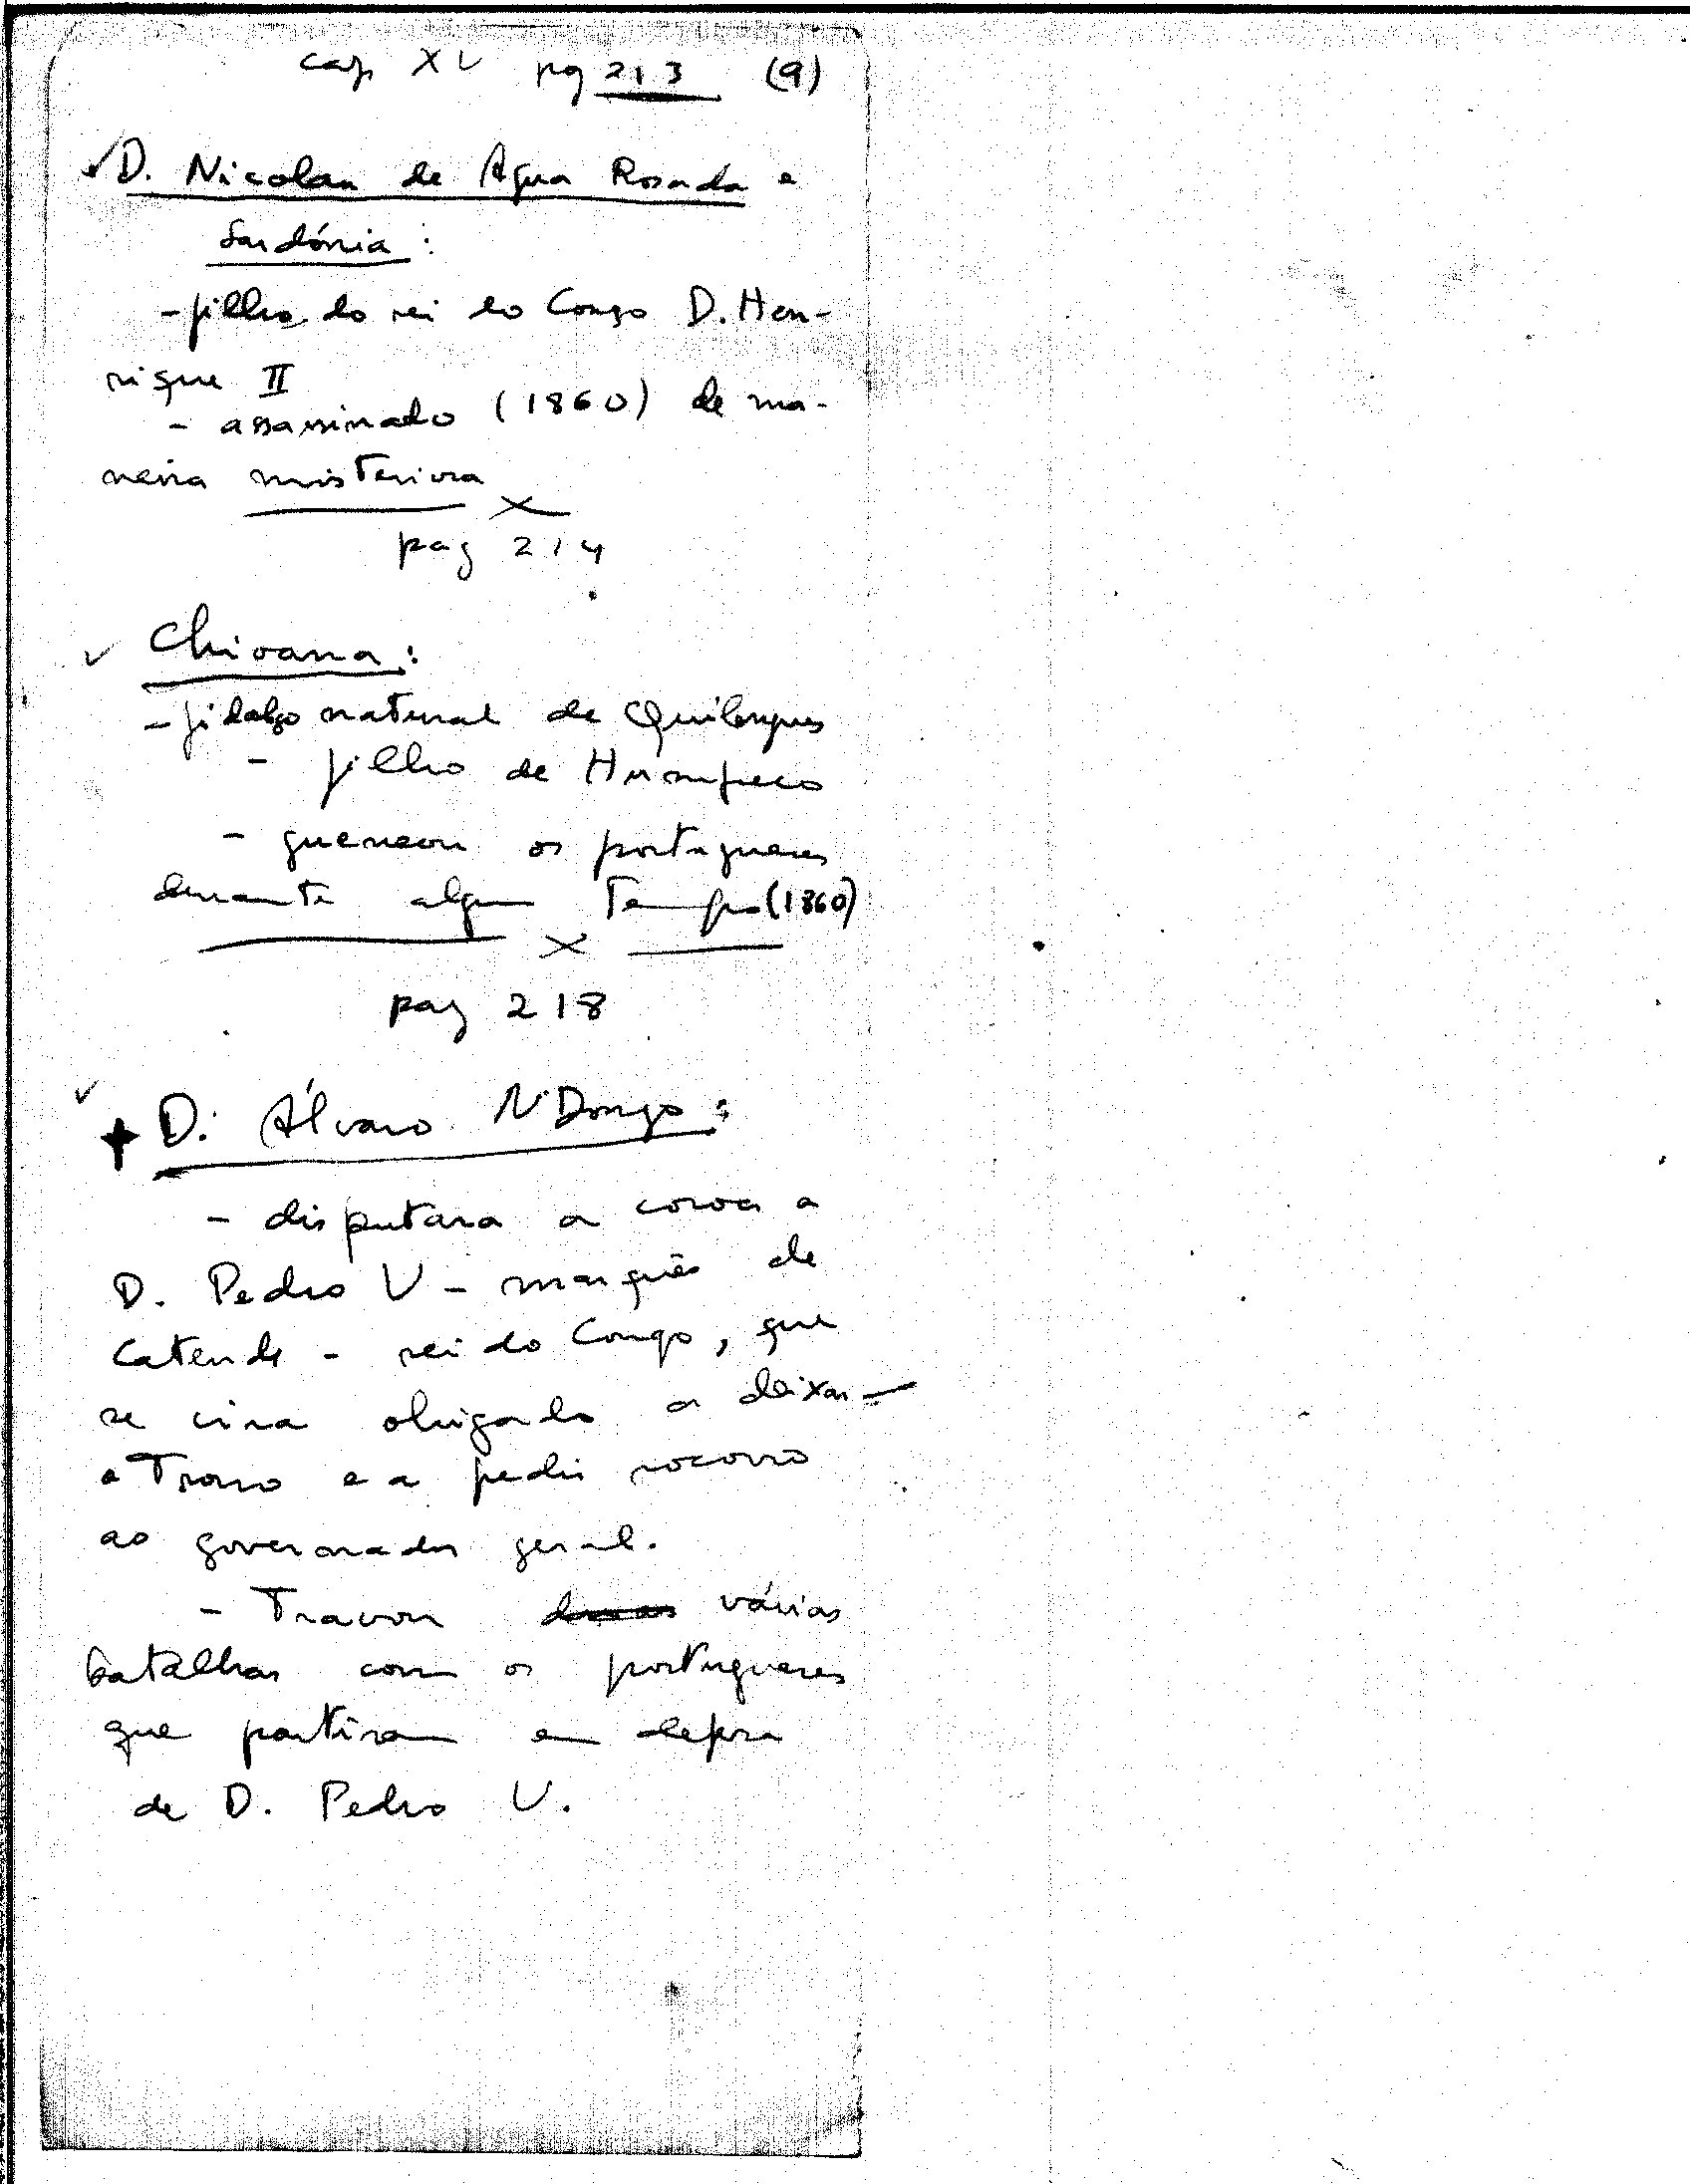 cap XV pg 213 (9)
D. Nicolau de Água Rosada e
Sardónia:
- filho do rei do Congo D. Hen-
rique II
- assassinado (1860) de ma-
neira misteriosa
pag 214
Chioana:
- fidalgo natural de Quilengues
- filho de Huampeco
- guerreou os portugueses
durante algum tempo (1860)
pag 218
D. Álvaro N'Dongo:
- disputara a coroa a
D. Pedro V - marquês de
Catende - rei do Congo, que
se vira obrigado a deixar
o Trono e a pedir socorro
ao governador geral.
- Travou duas várias
batalhas com os portugueses
que partiram em defesa
de D. Pedro V.